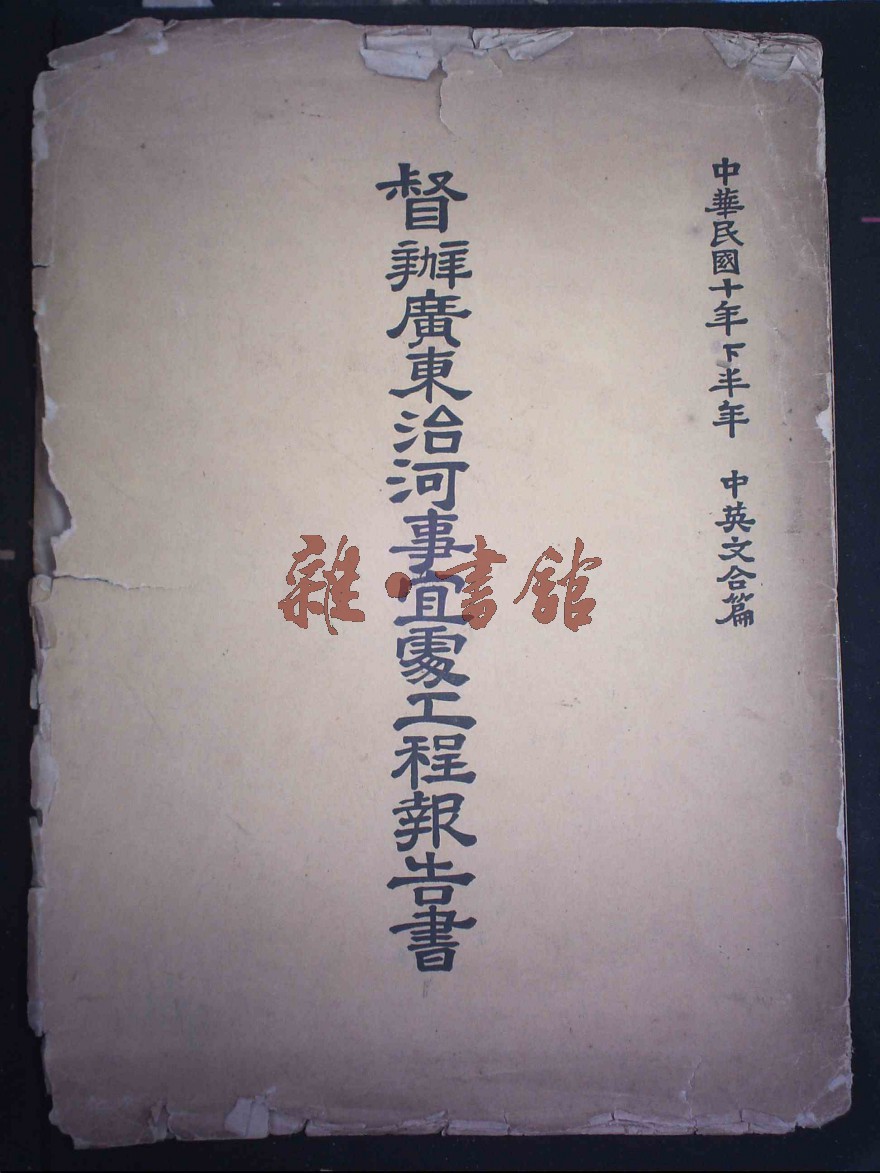 中華民國十年下半年 中英文合篇
督辦廣東治河事宜處工程報告書
雜·書館